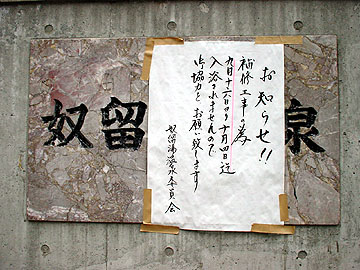 奴留 泉
お知らせ!!
補修工事の為
九月十六日より十月四日迄
入浴出来ませんので
御協力をお願い致します
奴留湯温泉委員会